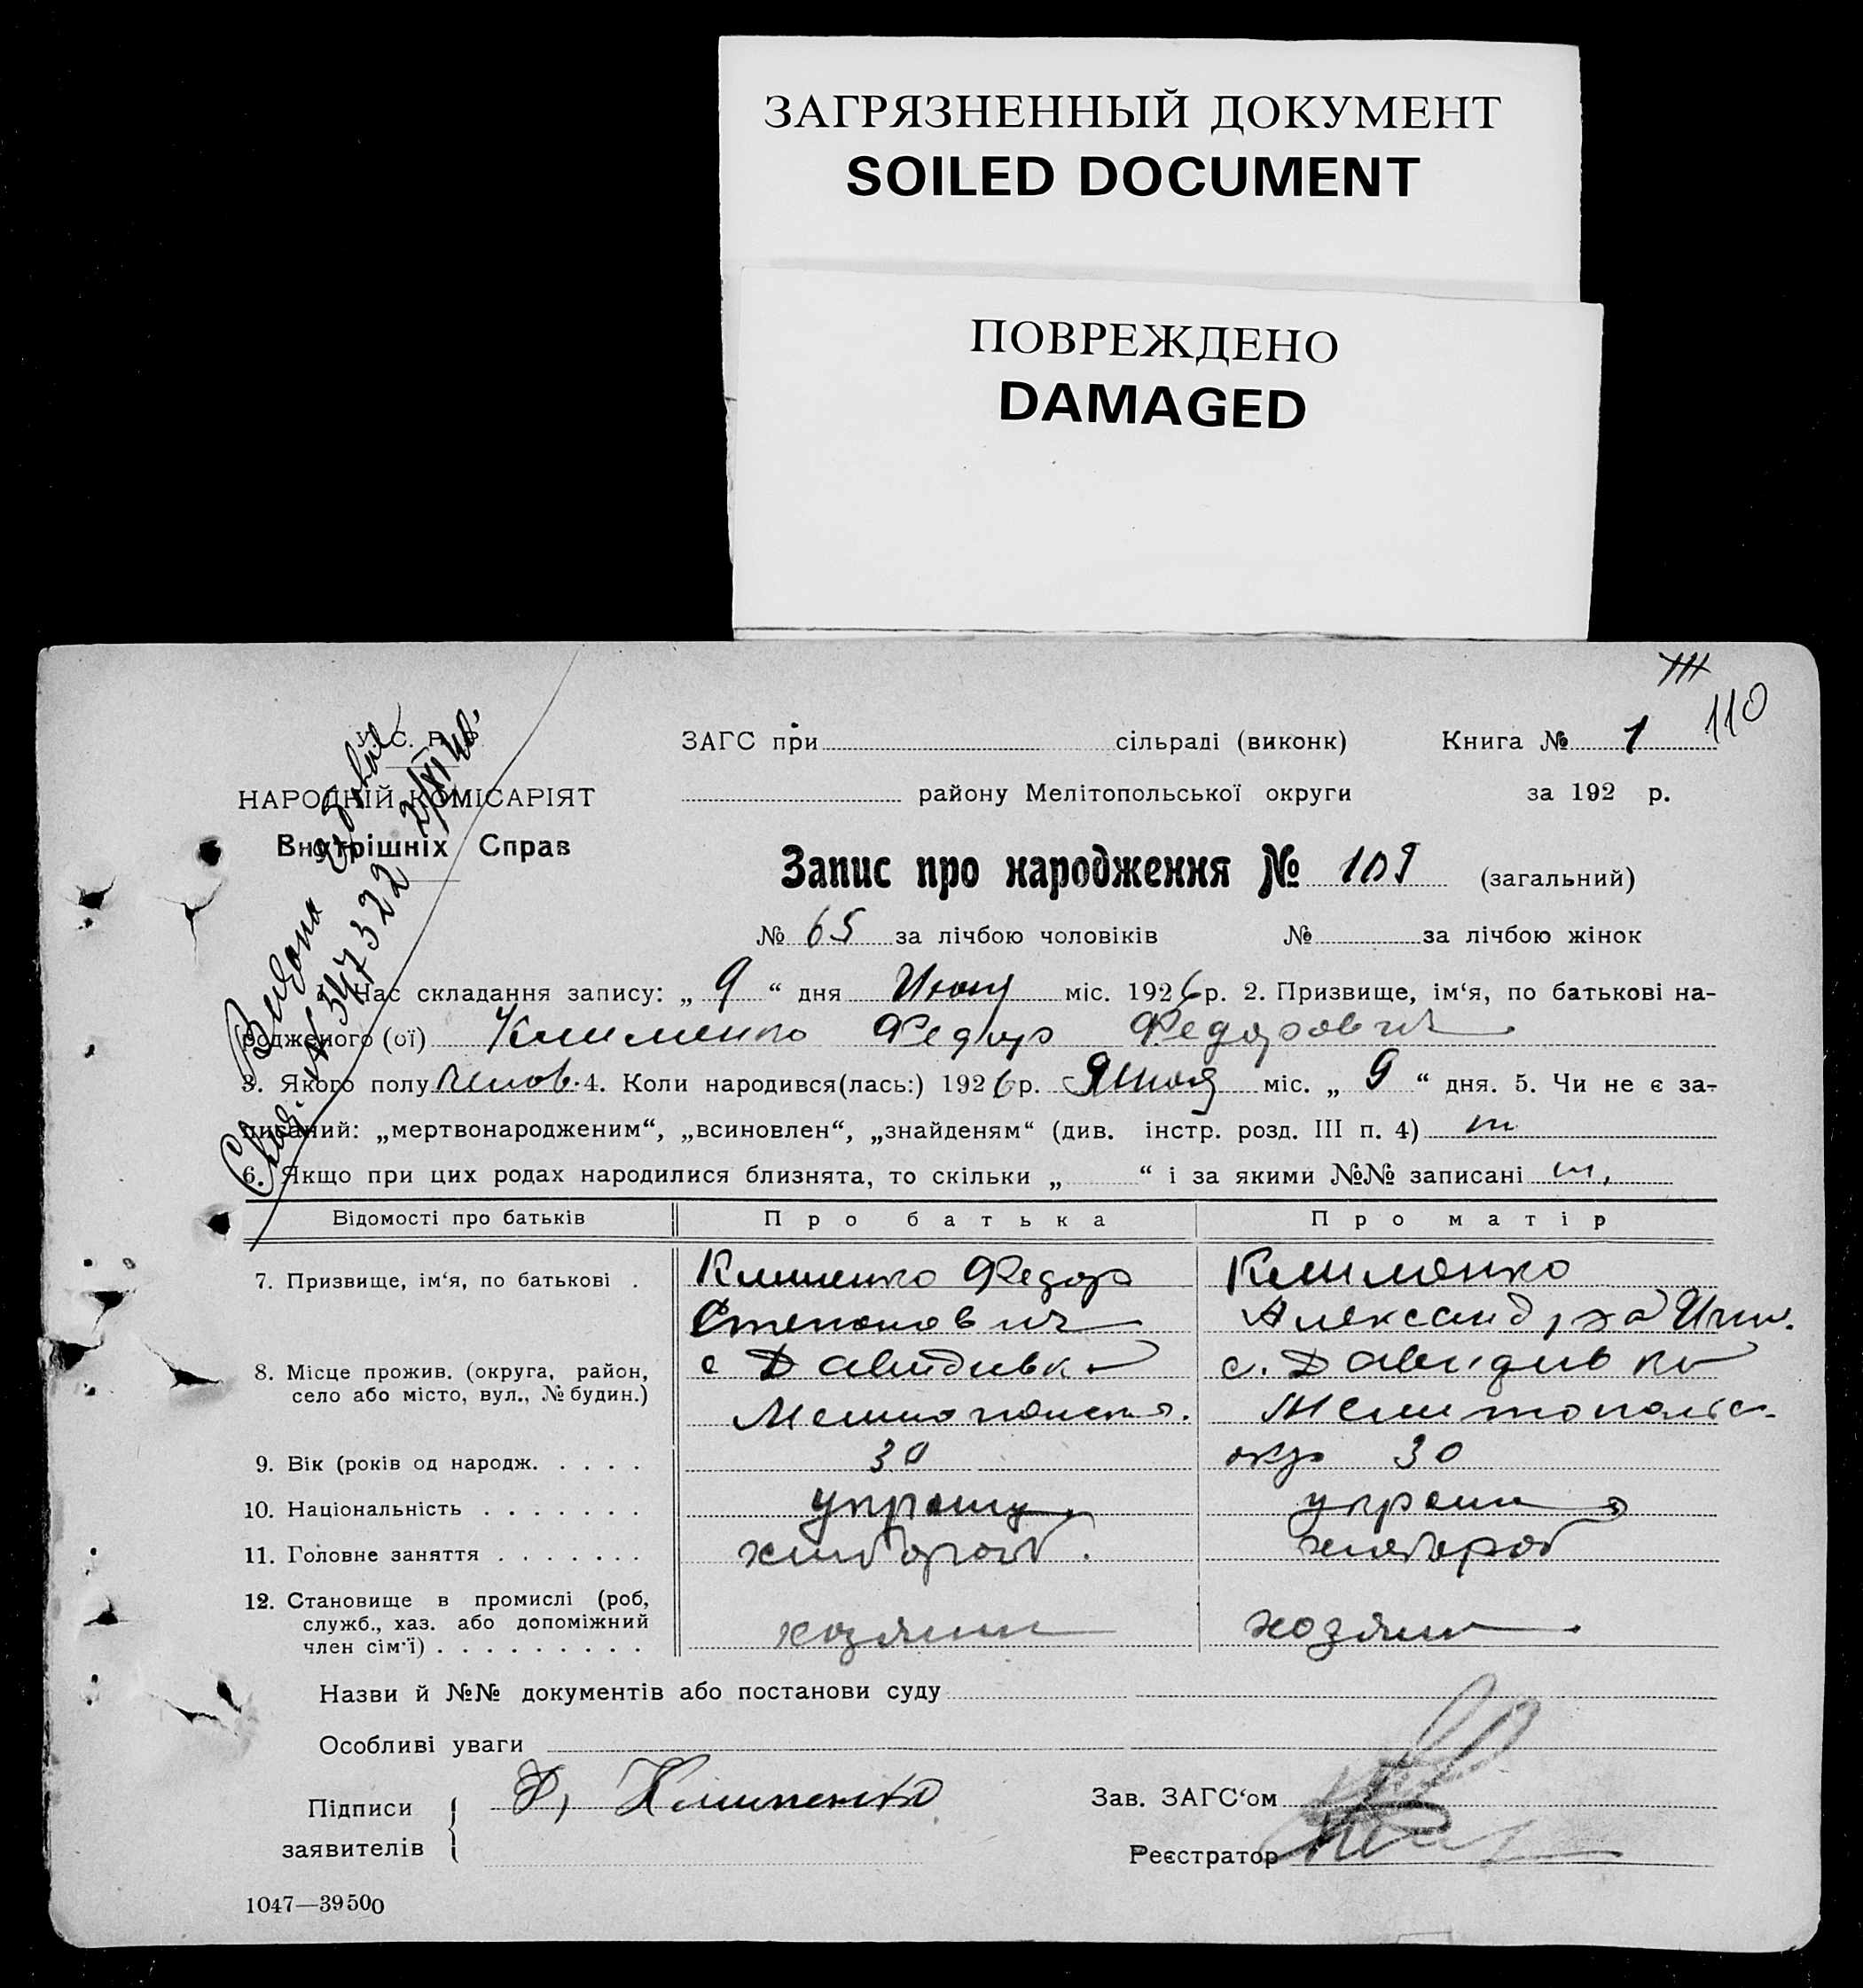 ЗАГРЯЗНЕННЫЙ ДОКУМЕНТ
SOILED DOCUMENT
ПОВРЕЖДЕНО
DAMAGED
111
110
ЗАГС при сільраді (виконк) Книга № 1
НАРОДНІЙ КОМІСАРІЯТ
району Мелітопольської округи за 192 р.
Внутрішніх Справ
Видано
№ 347322 2/XI 40.
Запис про народження № 109 (загальний)
№ 65 за лічбою чоловіків № за лічбою жінок
1. Час складання запису: „ 9 “ дня міс. 1926 р. 2. Призвище, ім‘я, по батькові на-
родженого (ої) Клименко Федор Федорович
3. Якого полу 4. Коли народився(лась:) 1926 р. міс. „ 9 “ дня. 5. Чи не є за-
писаний: „мертвонародженим“, „всиновлен“, „знайденям“ (див. інстр. розд. III п. 4)
6. Якщо при цих родах народилися близнята, то скільки „ “ і за якими №№ записані
Відомості про батьків Про батька Про матір
7. Призвище, ім‘я, по батькові . Клименко Федор Клименко
Степанович Александра
8. Місце прожив. (округа, район, с Давидівка с. Давидивка
село або місто, вул., № будин.)
Мелитопольск. Мелитопольск.
9. Вік (років од народж. . . . . 30 окр 30
10. Національність . . . . . . . украин. украин
11. Головне заняття . . . . . . . хлібороб. хлебороб
12. Становище в промислі (роб,
служб., хаз. або допоміжний
член сім‘ї) . . . . . . . . . хозяин хозяин
Назви й №№ документів або постанови суду
Особливі уваги
Підписи Ф, Клименко Зав. ЗАГС‘ом
заявителів
Реєстратор
1047—39500